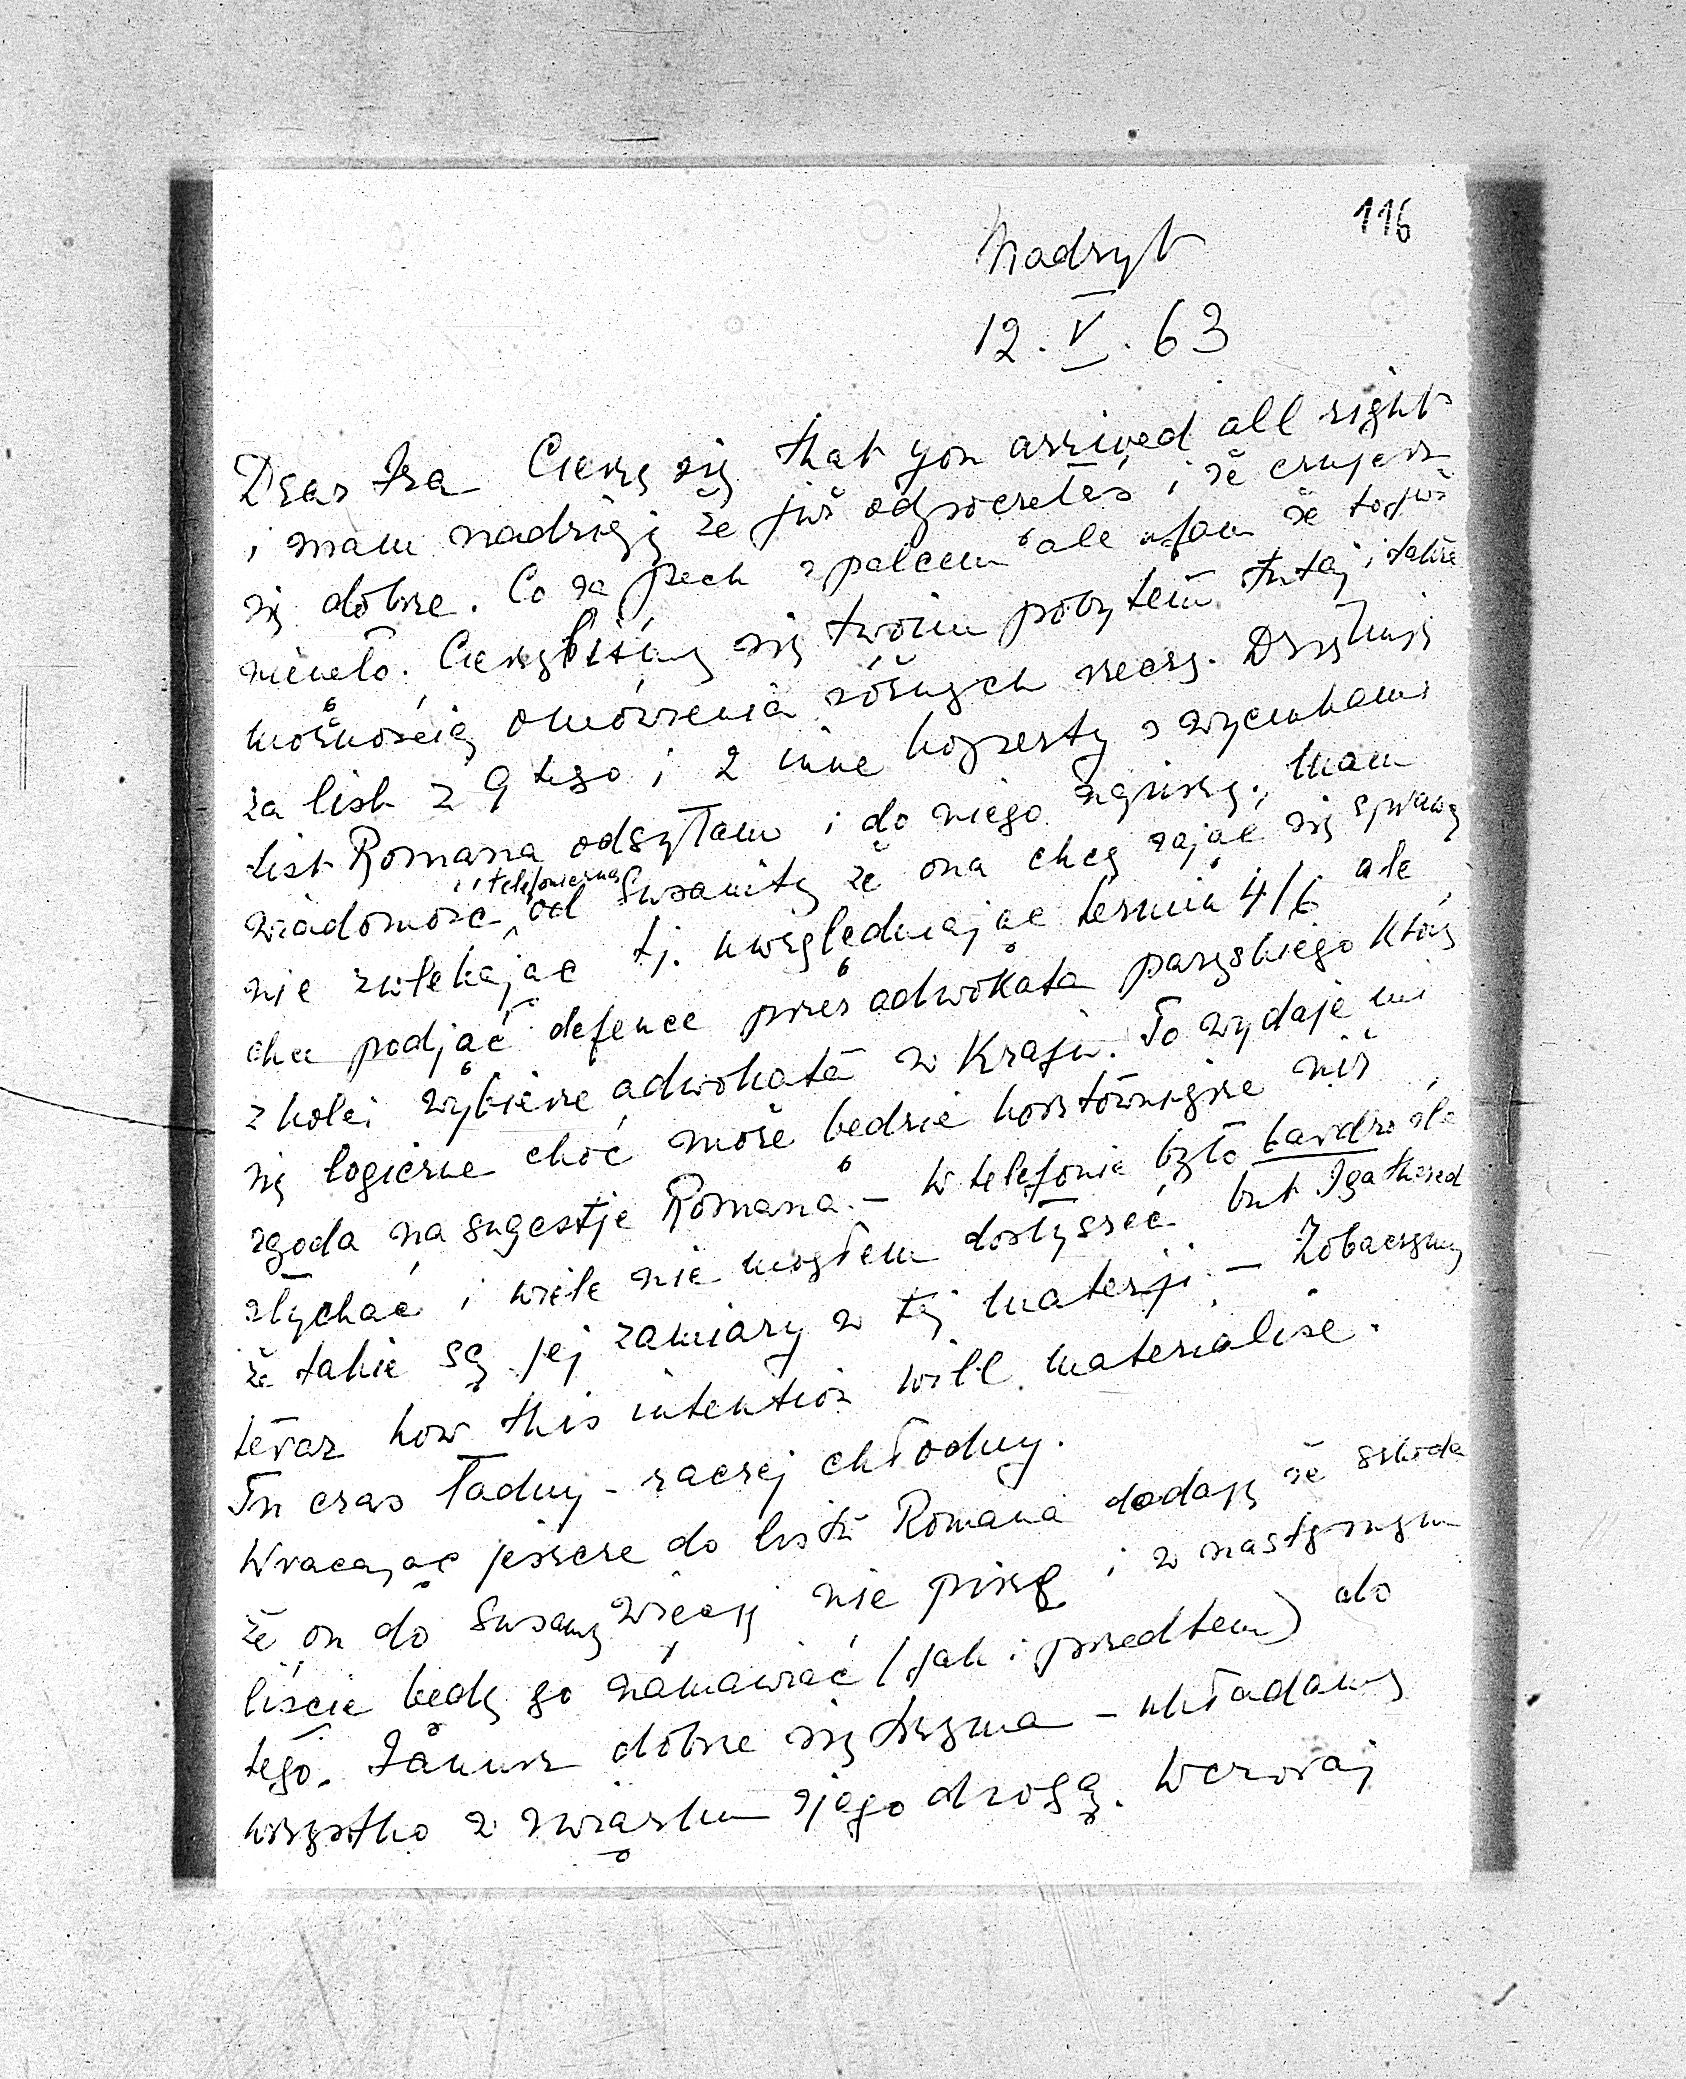 116
Madryt
12.V.63
Dear Iza Cieszę się that you arrived all right
i mam nadzieję że już odpoczęłaś i że czujesz
się dobrze. Co za pech z palcem ale ufam że to już
minęło. Cieszyliśmy się twoim pobytem tutaj i także
możnością omówienia różnych rzeczy. Dziękuję
za list z 9 tego i 2 inne koperty z wycinkami
list Romana odsyłam i do niego napiszę. Mam
wiadomość telefoniczną od Suzanity że ona chcę zająć się sprawą
nie zwlekając tj. uwzględniając termin 4/6 ale
chce podjąć defence przez adwokata paryskiego który
z kolei wybierze adwokata w Kraju. To wydaje mi
się logiczne choć może będzie kosztowniejsze niż
zgoda na sugestje Romana. – W telefonie było bardzo źle
słychać i wiele nie mogłem dosłyszeć but I gathered
że takie są jej zamiary w tej materji. – Zobaczymy
teraz how this intention will materialise.
Tu czas ładny – raczej chłodny.
Wracając jeszcze do listu Romana dodaję że szkoda
że on do Suzany więcej nie piszę i w następnym
liście będę go namawiać (jak i przedtem) do
tego. Janusz dobrze się trzyma – układamy
wszystko w związku z jego drogą. Wczoraj